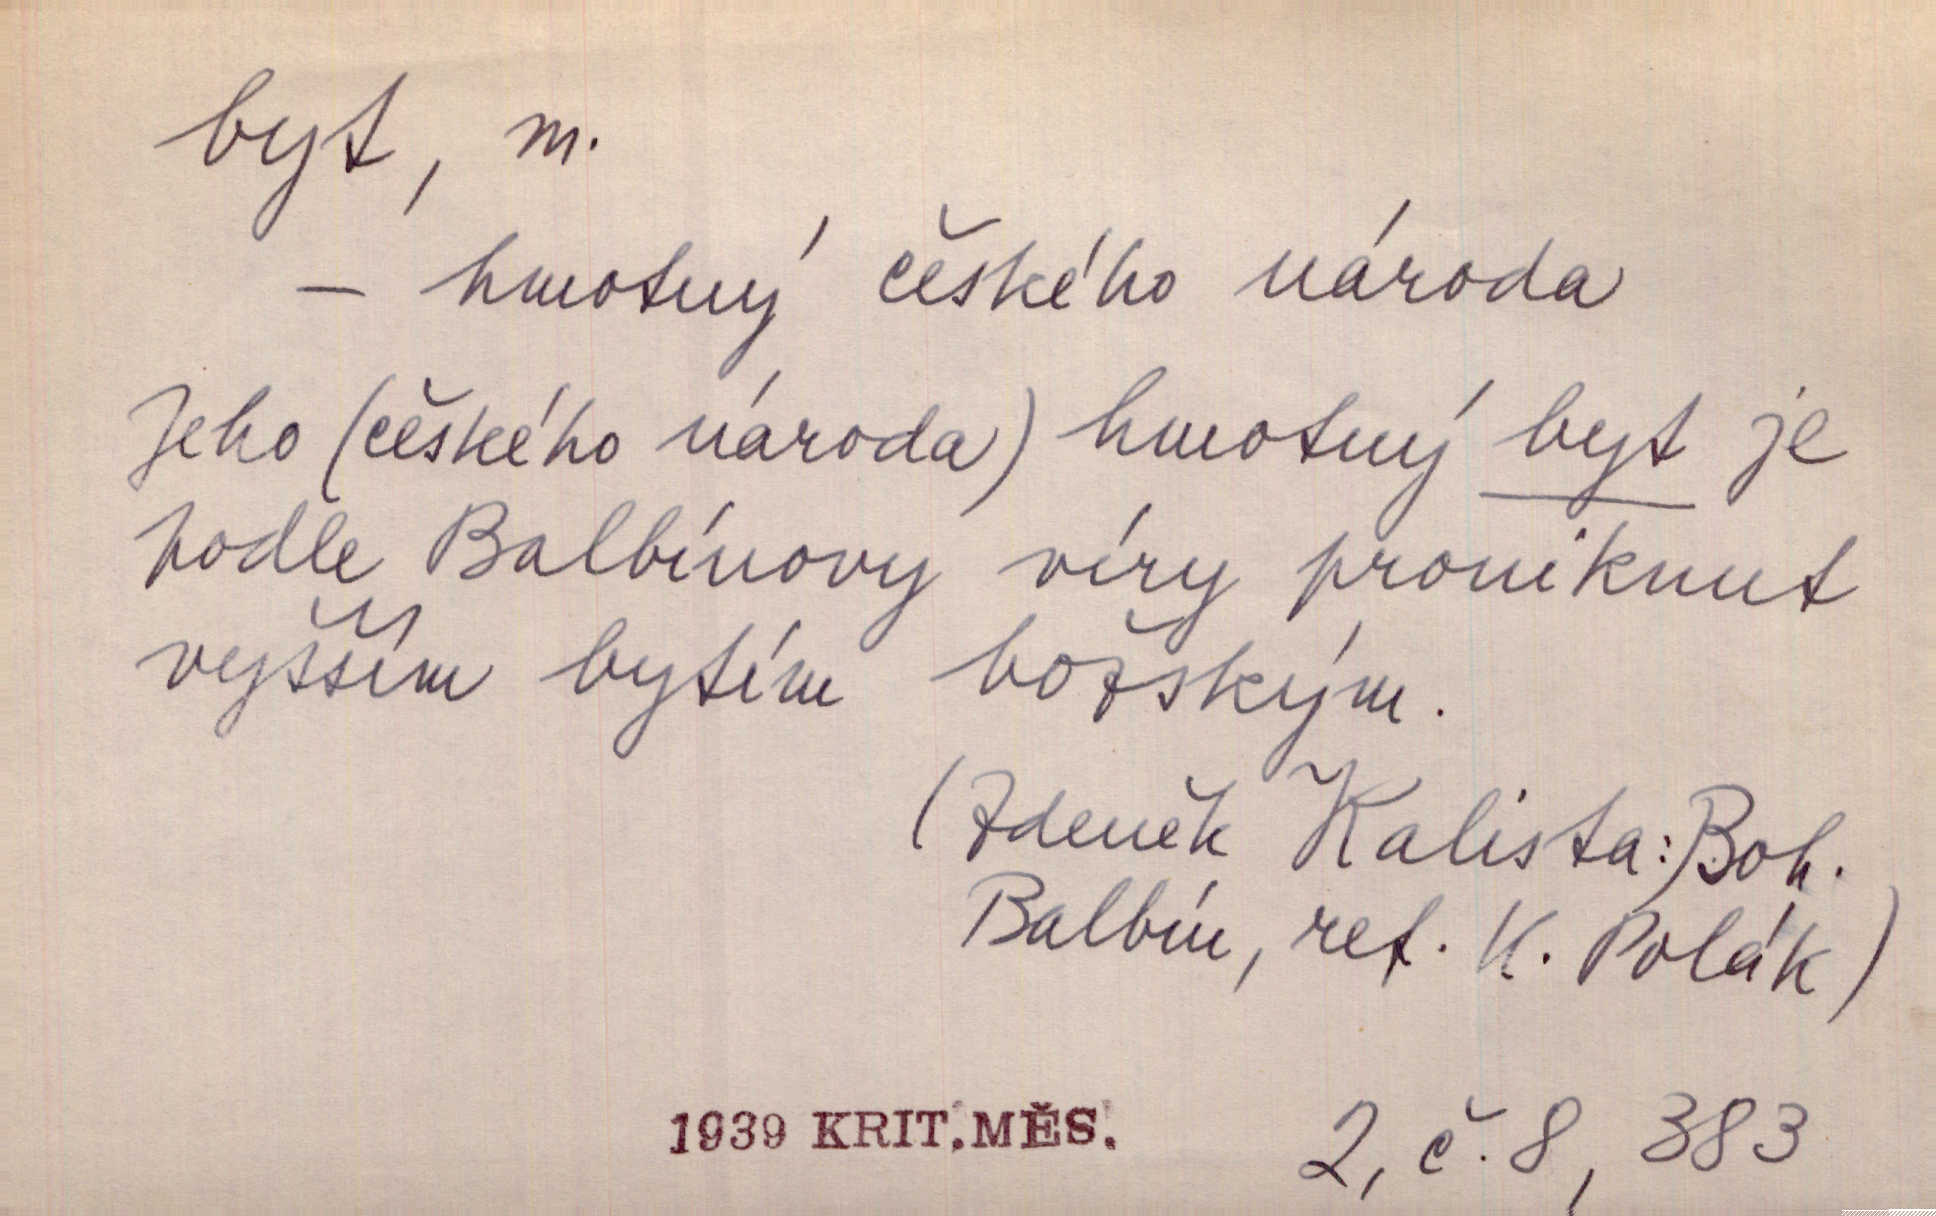 byt, m.
– hmotný českého národa
Jeho (českého národa) hmotný byt je
podle Balbínovy víry proniknut
vyšším bytím božským.
(Zdeněk Kalista: Boh.
Balbín, ref. K. Polák)
1939 KRIT. MĚS. 2, č. 8, 383